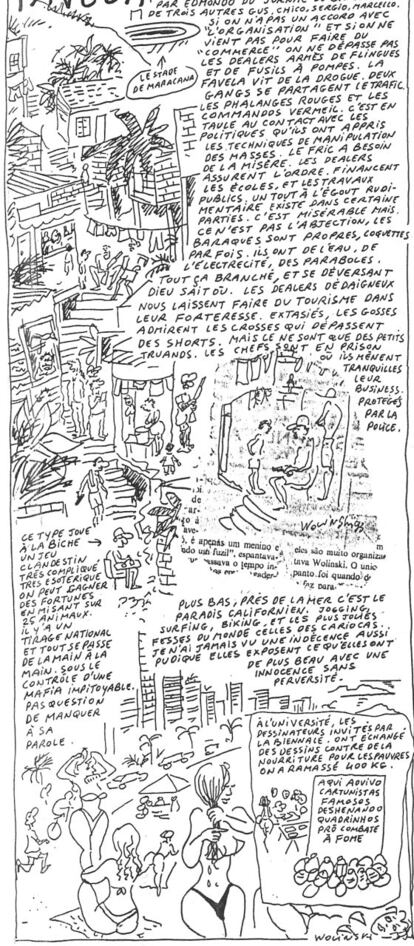 PAR EDMONDO DU
DE TROIS AUTRES GUS, CHICO, SERGIO, MARCELLO.
SI ON N'A PAS UN ACCORD AVEC
"L'ORGANISATION" ET SI ON NE
VIENT PAS POUR FAIRE DU
"COMMERCE" ON NE DÉPASSE PAS
LES DEALERS ARMÉS DE FLINGUES
ET DE FUSILS À POMPES. LA
FAVELA VIT DE LA DROGUE. DEUX
GANGS SE PARTAGENT LE TRAFIC.
LES PHALANGES ROUGES ET LES
COMMANDOS VERMEIL. C'EST EN
TAULE AU CONTACT AVEC LES
POLITIQUES QU'ILS ONT APPRIS
LES TECHNIQUES DE MANIPULATION
DES MASSES. LE FRIC A BESOIN
DE LA MISÈRE. LES DEALERS
ASSURENT L'ORDRE. FINANCENT
LES ÉCOLES, ET LES TRAVAUX
PUBLICS. UN TOUT À L'ÉGOUT RUDI-
MENTAIRE EXISTE DANS CERTAINE
PARTIES. C'EST MISÉRABLE MAIS
CE N'EST PAS L'ABJECTION, LES
BARAQUES SONT PROPRES, COQUETTES
PARFOIS. ILS ONT DE L'EAU, DE
L'ÉLECTRECITÉ, DES PARABOLES.
TOUT ÇA BRANCHÉ, ET SE DÉVERSANT
DIEU SAIT OÙ. LES DEALERS DÉDAIGNEUX
NOUS LAISSENT FAIRE DU TOURISME DANS
LEUR FORTERESSE. EXTASIÉS, LES GOSSES
ADMIRENT LES CROSSES QUI DÉPASSENT
DES SHORTS. MAIS CE NE SONT QUE DES PETITS
TRUANDS. LES CHEFS SONT EN PRISON
OÙ ILS MÈNENT
TRANQUILLES
LEUR
BUSINESS.
PROTÉGÉS
PAR LA
POLICE.
LE STADE
DE MARACANA
WOLINSKI 93
, é apenas um menino e
do um fuzil", espantava-
ssava o tempo in-
eles são muito organiza
uva Wolinski. O unic
punto foi quando d
foz para
CE TYPE JOUE
À LA BICHE
UN JEU
CLANDESTIN
TRÈS COMPLIQUÉ
TRÈS ESOTÉRIQUE
ON PEUT GAGNER
DES FORTUNES
EN MISANT SUR
25 ANIMAUX.
IL Y A UN
TIRAGE NATIONAL
ET TOUT SE PASSE
DE LA MAIN À LA
MAIN. SOUS LE
CONTRÔLE D'UNE
MAFIA IMPITOYABLE.
PAS QUESTION
DE MANQUER
À SA
PAROLE.
PLUS BAS, PRÈS DE LA MER C'EST LE
PARADIS CALIFORNIEN. JOGGING,
SURFING, BIKING, ET LES PLUS JOLIES
FESSES DU MONDE CELLES DES CARIOCAS.
JE N'AI JAMAIS VU UNE INDÉCENCE AUSSI
PUDIQUE ELLES EXPOSENT CE QU'ELLES ONT
DE PLUS BEAU AVEC UNE
INNOCENCE SANS
PERVERSITÉ.
À L'UNIVERSITÉ, LES
DESSINATEURS INVITÉS PAR
LA BIENNALE, ONT ÉCHANGÉ
DES DESSINS CONTRE DE LA
NOURRITURE POUR LES PAUVRES
ON A RAMASSÉ 400 KG.
AQUI AO VIVO
CARTUNISTAS
FAMOSOS
DESHENANDO
QUADRINHOS
PRÓ COMBATE
À FOME
WOLINSKI